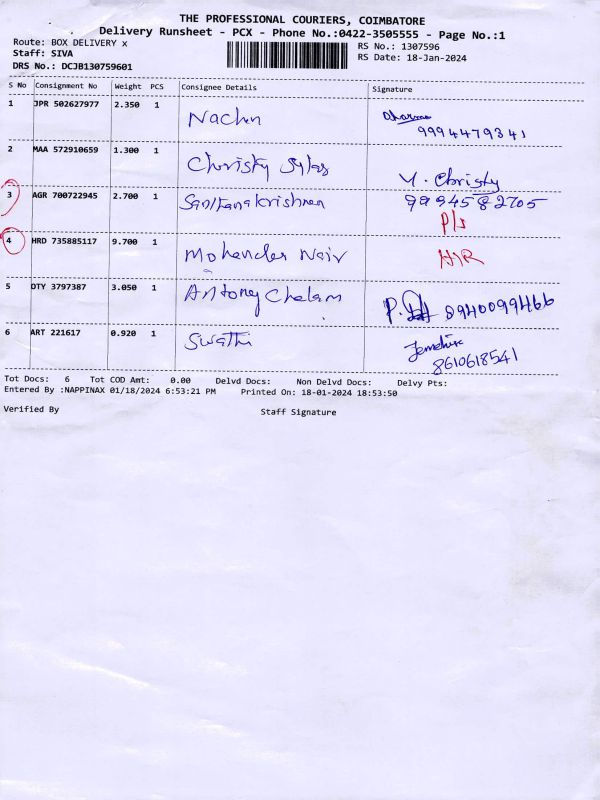 THE PROFESSIONAL COURIERS, COIMBATORE
Delivery Runsheet - PCX - Phone No.:0422-3505555 - Page No.:1
Route: BOX DELIVERY x
Staff: SIVA
DRS No.: DCJB130759601
RS No.: 1307596
RS Date: 18-Jan-2024
S No Consignment No Weight PCS Consignee Details Signature
1 JPR 502627977 2.350 1 Nachn Dharma
9994479341
2 MAA 572910659 1.300 1 Christy Sylas Y. Christy
9994582705
3 AGR 700722945 2.700 1 P/s
4 HRD 735885117 9.700 1 Mohander Nair H/R
5 OTY 3797387 3.050 1 Antony Chelam P. 8940099466
6 ART 221617 0.920 1 Swathi
8610618541
Tot Docs: 6 Tot COD Amt: 0.00 Delvd Docs: Non Delvd Docs: Delvy Pts:
Entered By :NAPPINAX 01/18/2024 6:53:21 PM Printed On: 18-01-2024 18:53:50
Verified By Staff Signature